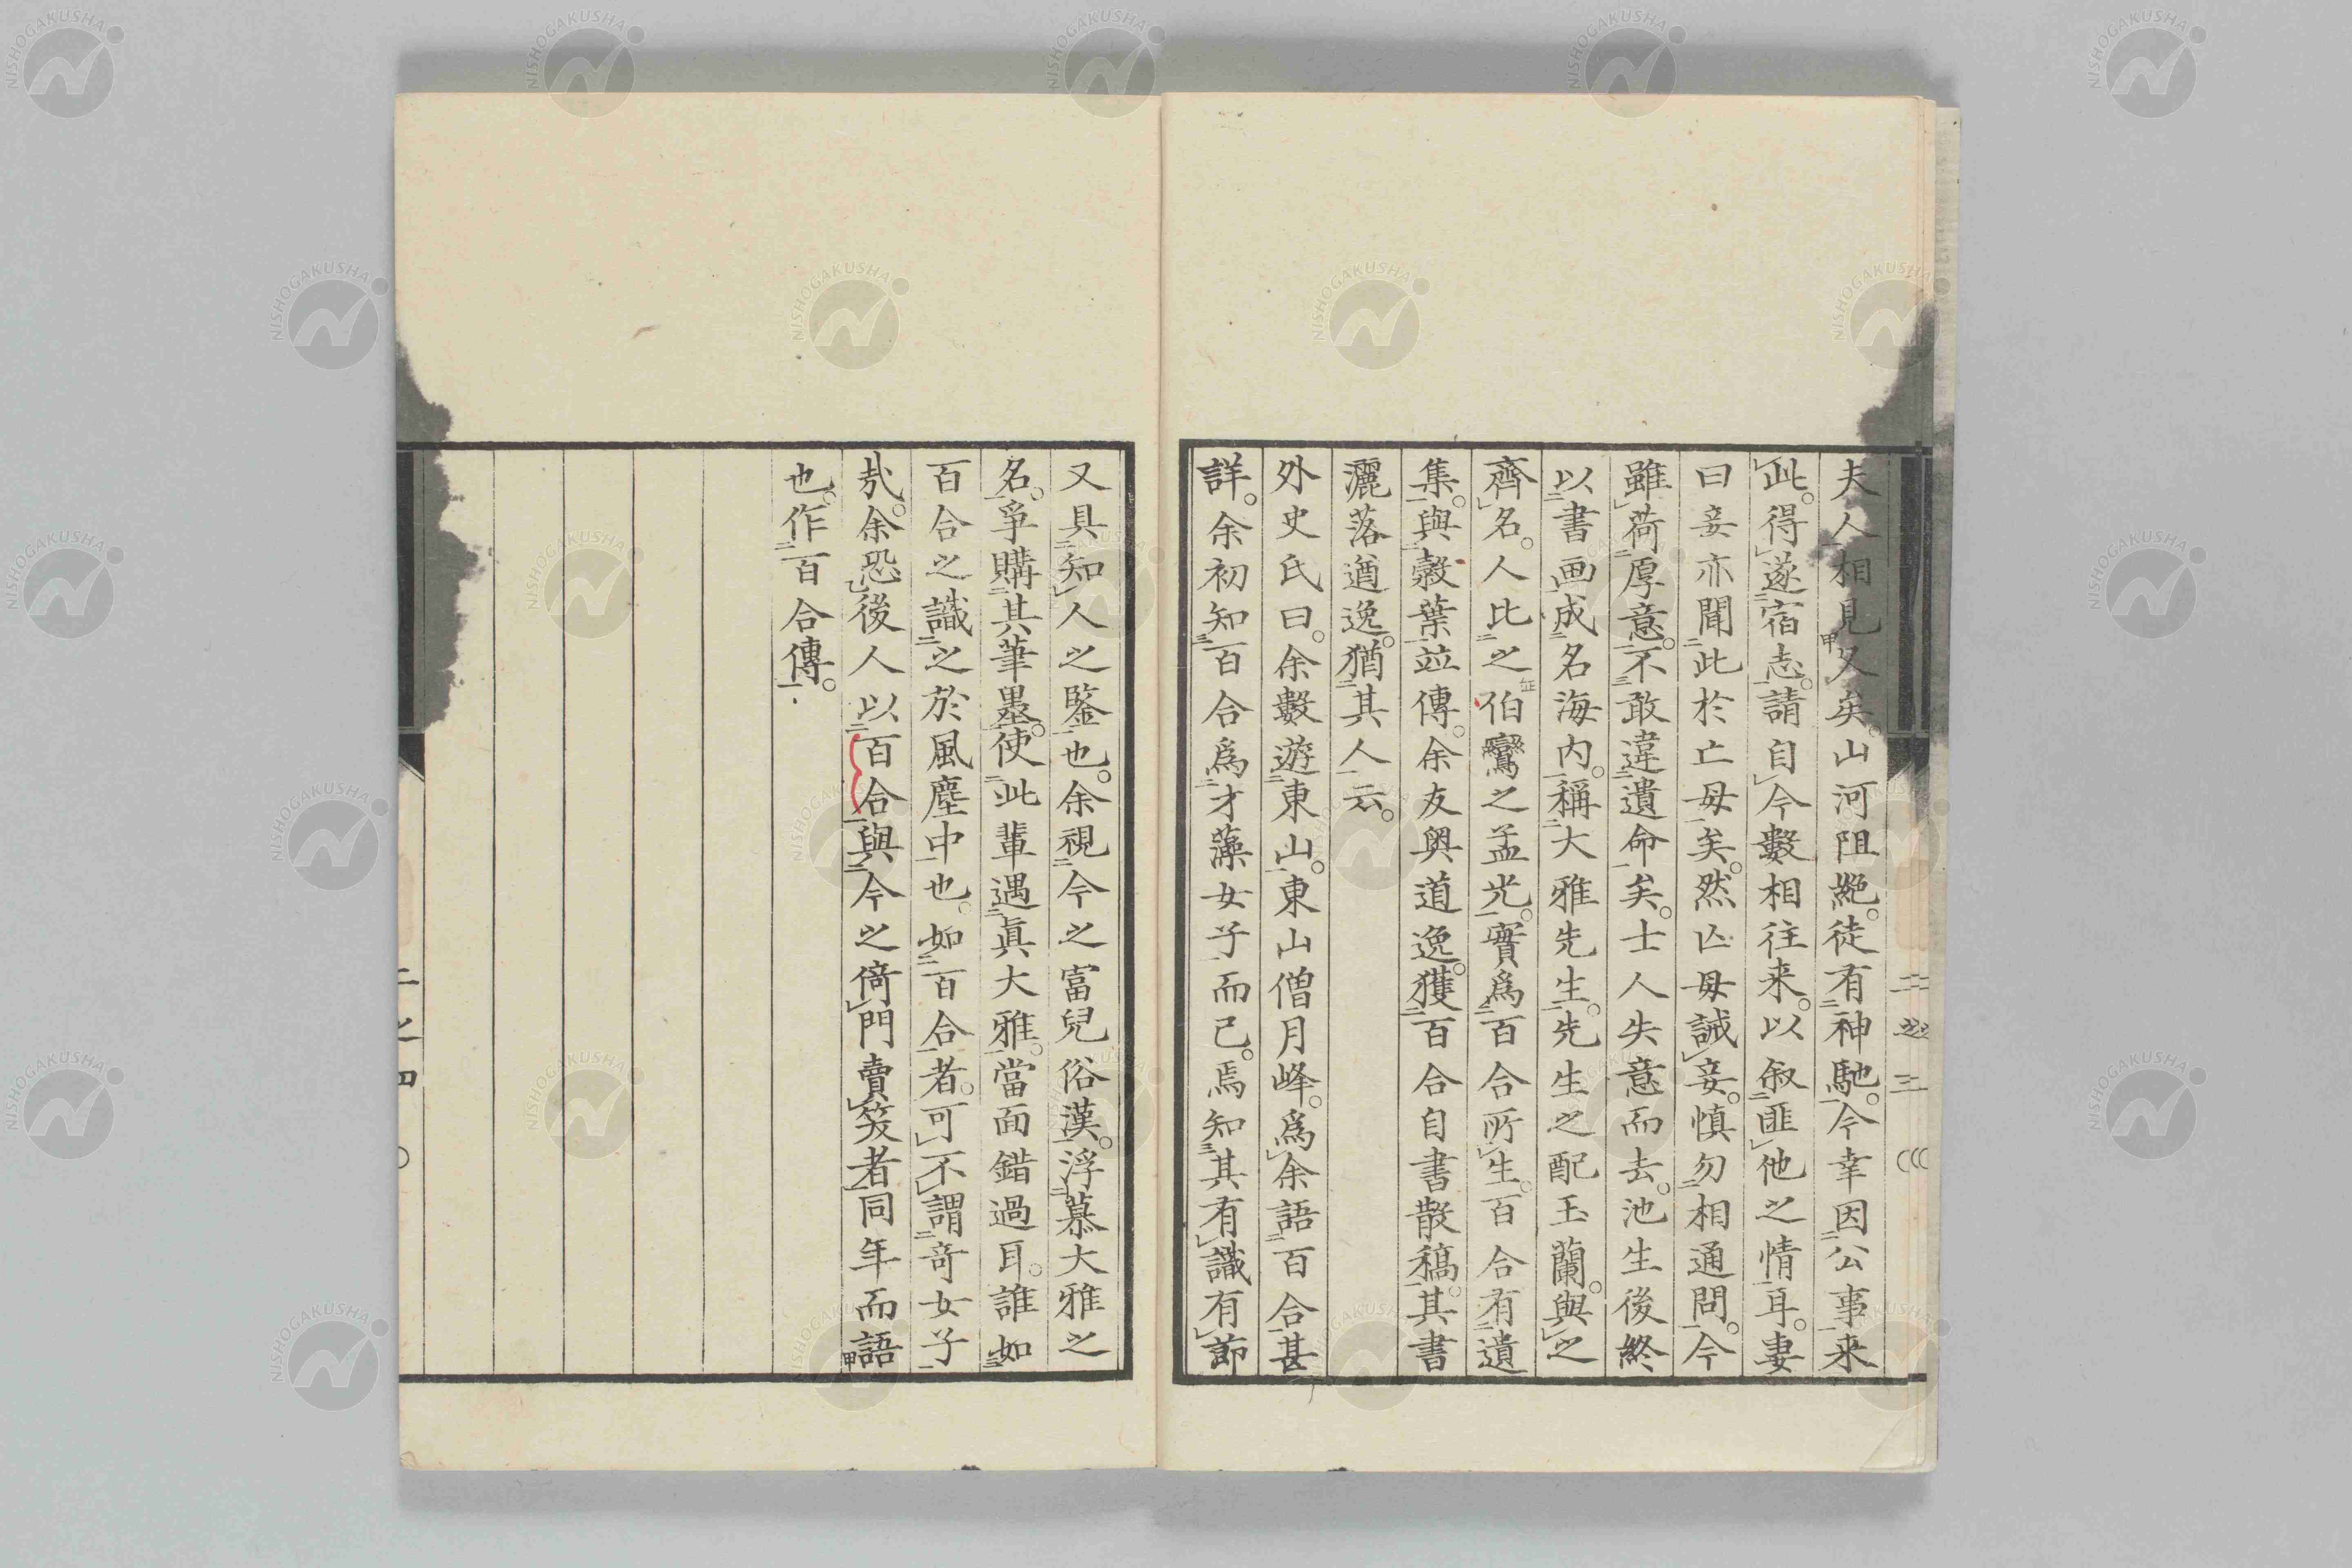 夫人相見久矣。山河阻絶。徒有神馳。今幸因公事来
此。得遂宿志。請自今數相往来。以叙匪他之情耳。妻
曰妾亦聞此於亡母矣。然亡母誡妾。慎勿相通問。今
雖荷厚意。不敢違遺命矣。士人失意而去。池生後終
以書画成名海内。稱大雅先生。先生之配玉蘭。與之
齊名。人比之伯鸞之孟光。實爲百合所生。百合有遺
集。與穀葉並傳。余友奥道逸。獲百合自書散稿。其書
灑落遒逸。猶其人云。
外史氏曰。余數遊東山。東山僧月峰。爲余語百合甚
詳。余初知百合爲才藻女子而已。焉知其有識有節
又具知人之鑒也。余視今之富兒俗漢。浮慕大雅之
名。爭購其筆墨。使此輩遇眞大雅。當面錯過耳。誰如
百合之識之於風塵中也。如百合者。可不謂奇女子
哉。余恐後人以百合與今之倚門賣笑者同年而語
也。作百合傳。
二之四
NISHOGAKUSHA